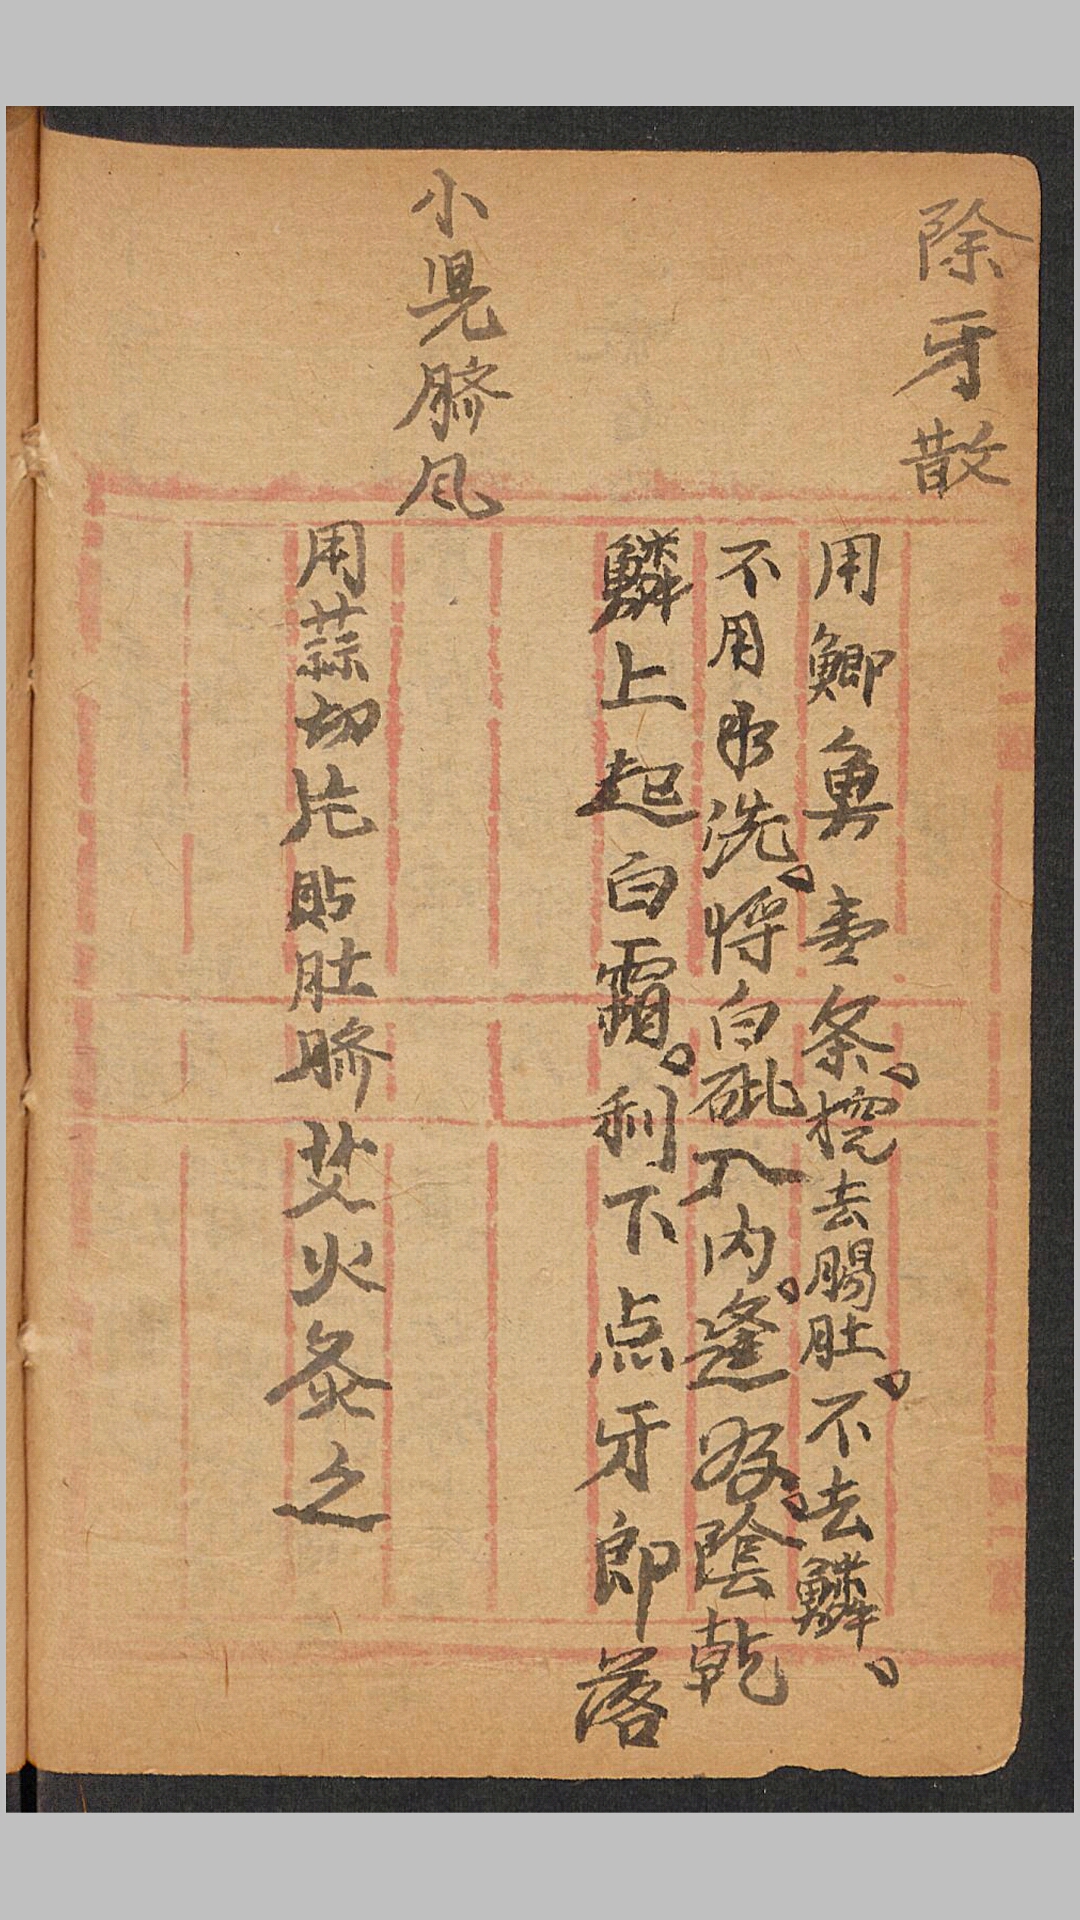 除牙散
用鯽魚壹条。挖去腸肚。不去鱗。
不用水洗。将白砒入内。逢好。陰乾
鱗上起白霜。利下点牙即落
小児臍风
用蒜切片貼肚臍艾火灸之